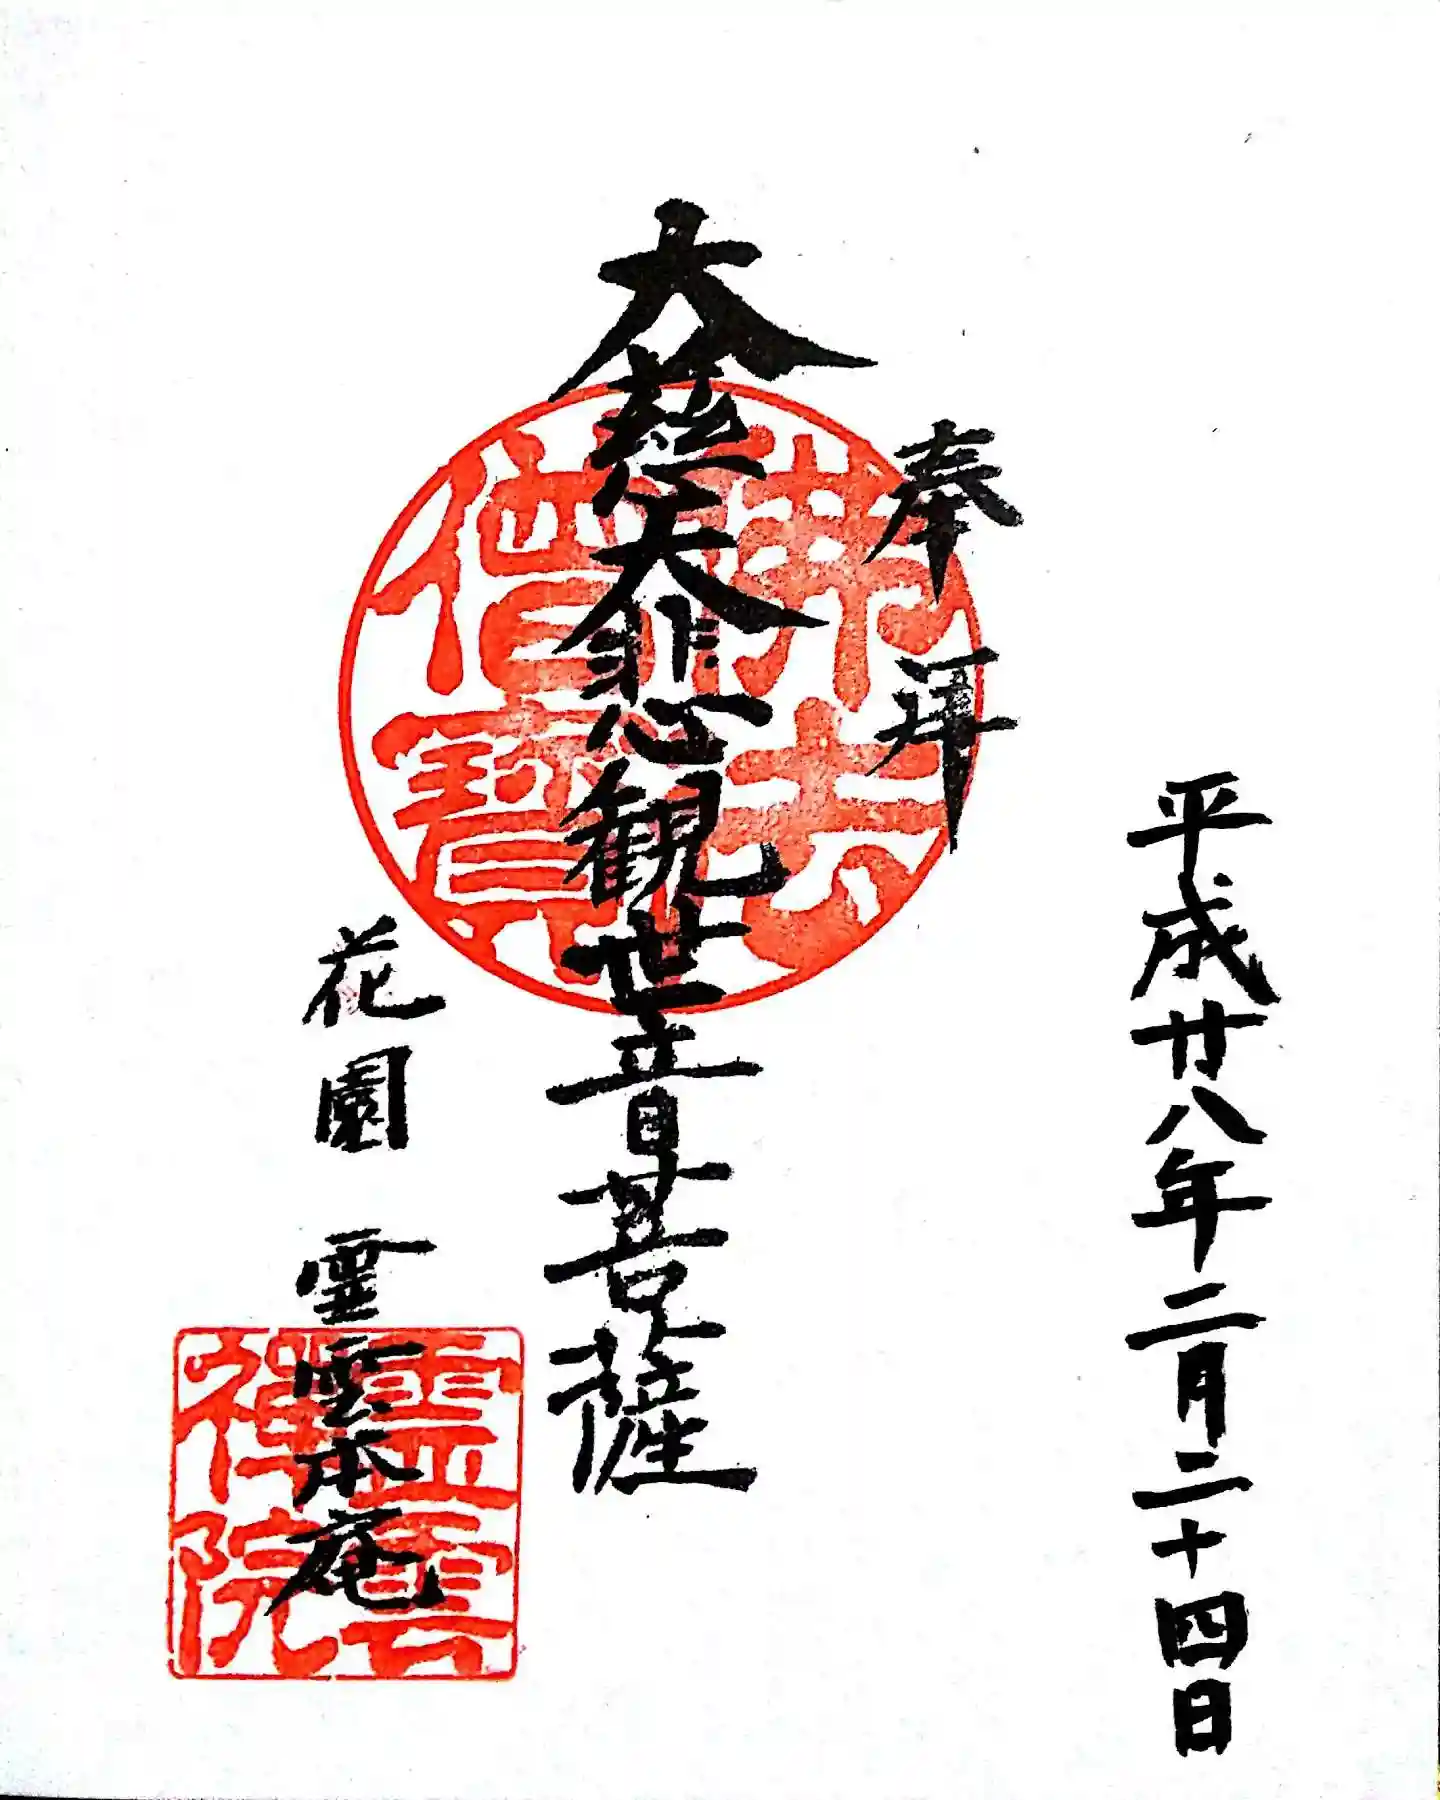 平成廿八年二月二十四日
奉拜
大慈大悲観世音菩薩
花園 霊雲本庵
佛法僧寶
霊雲禅院